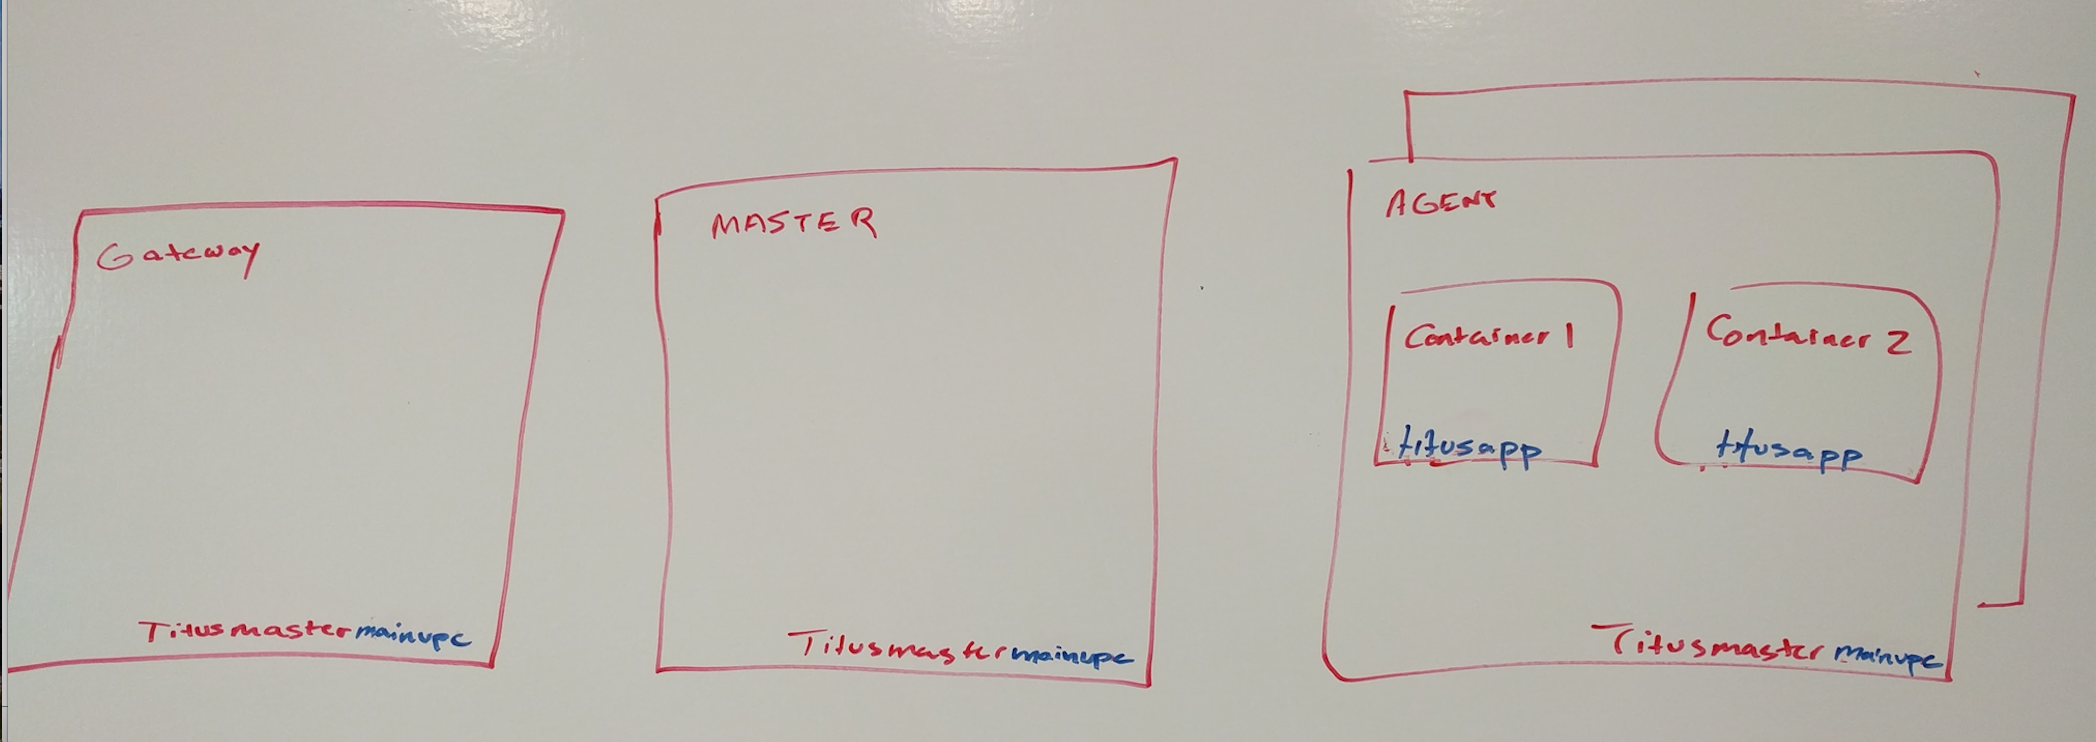 Gateway
Titusmastermainvpc
MASTER
Titusmastermainvpc
AGENT
Container 1
titusapp
Container 2
titusapp
Titusmaster mainvpc